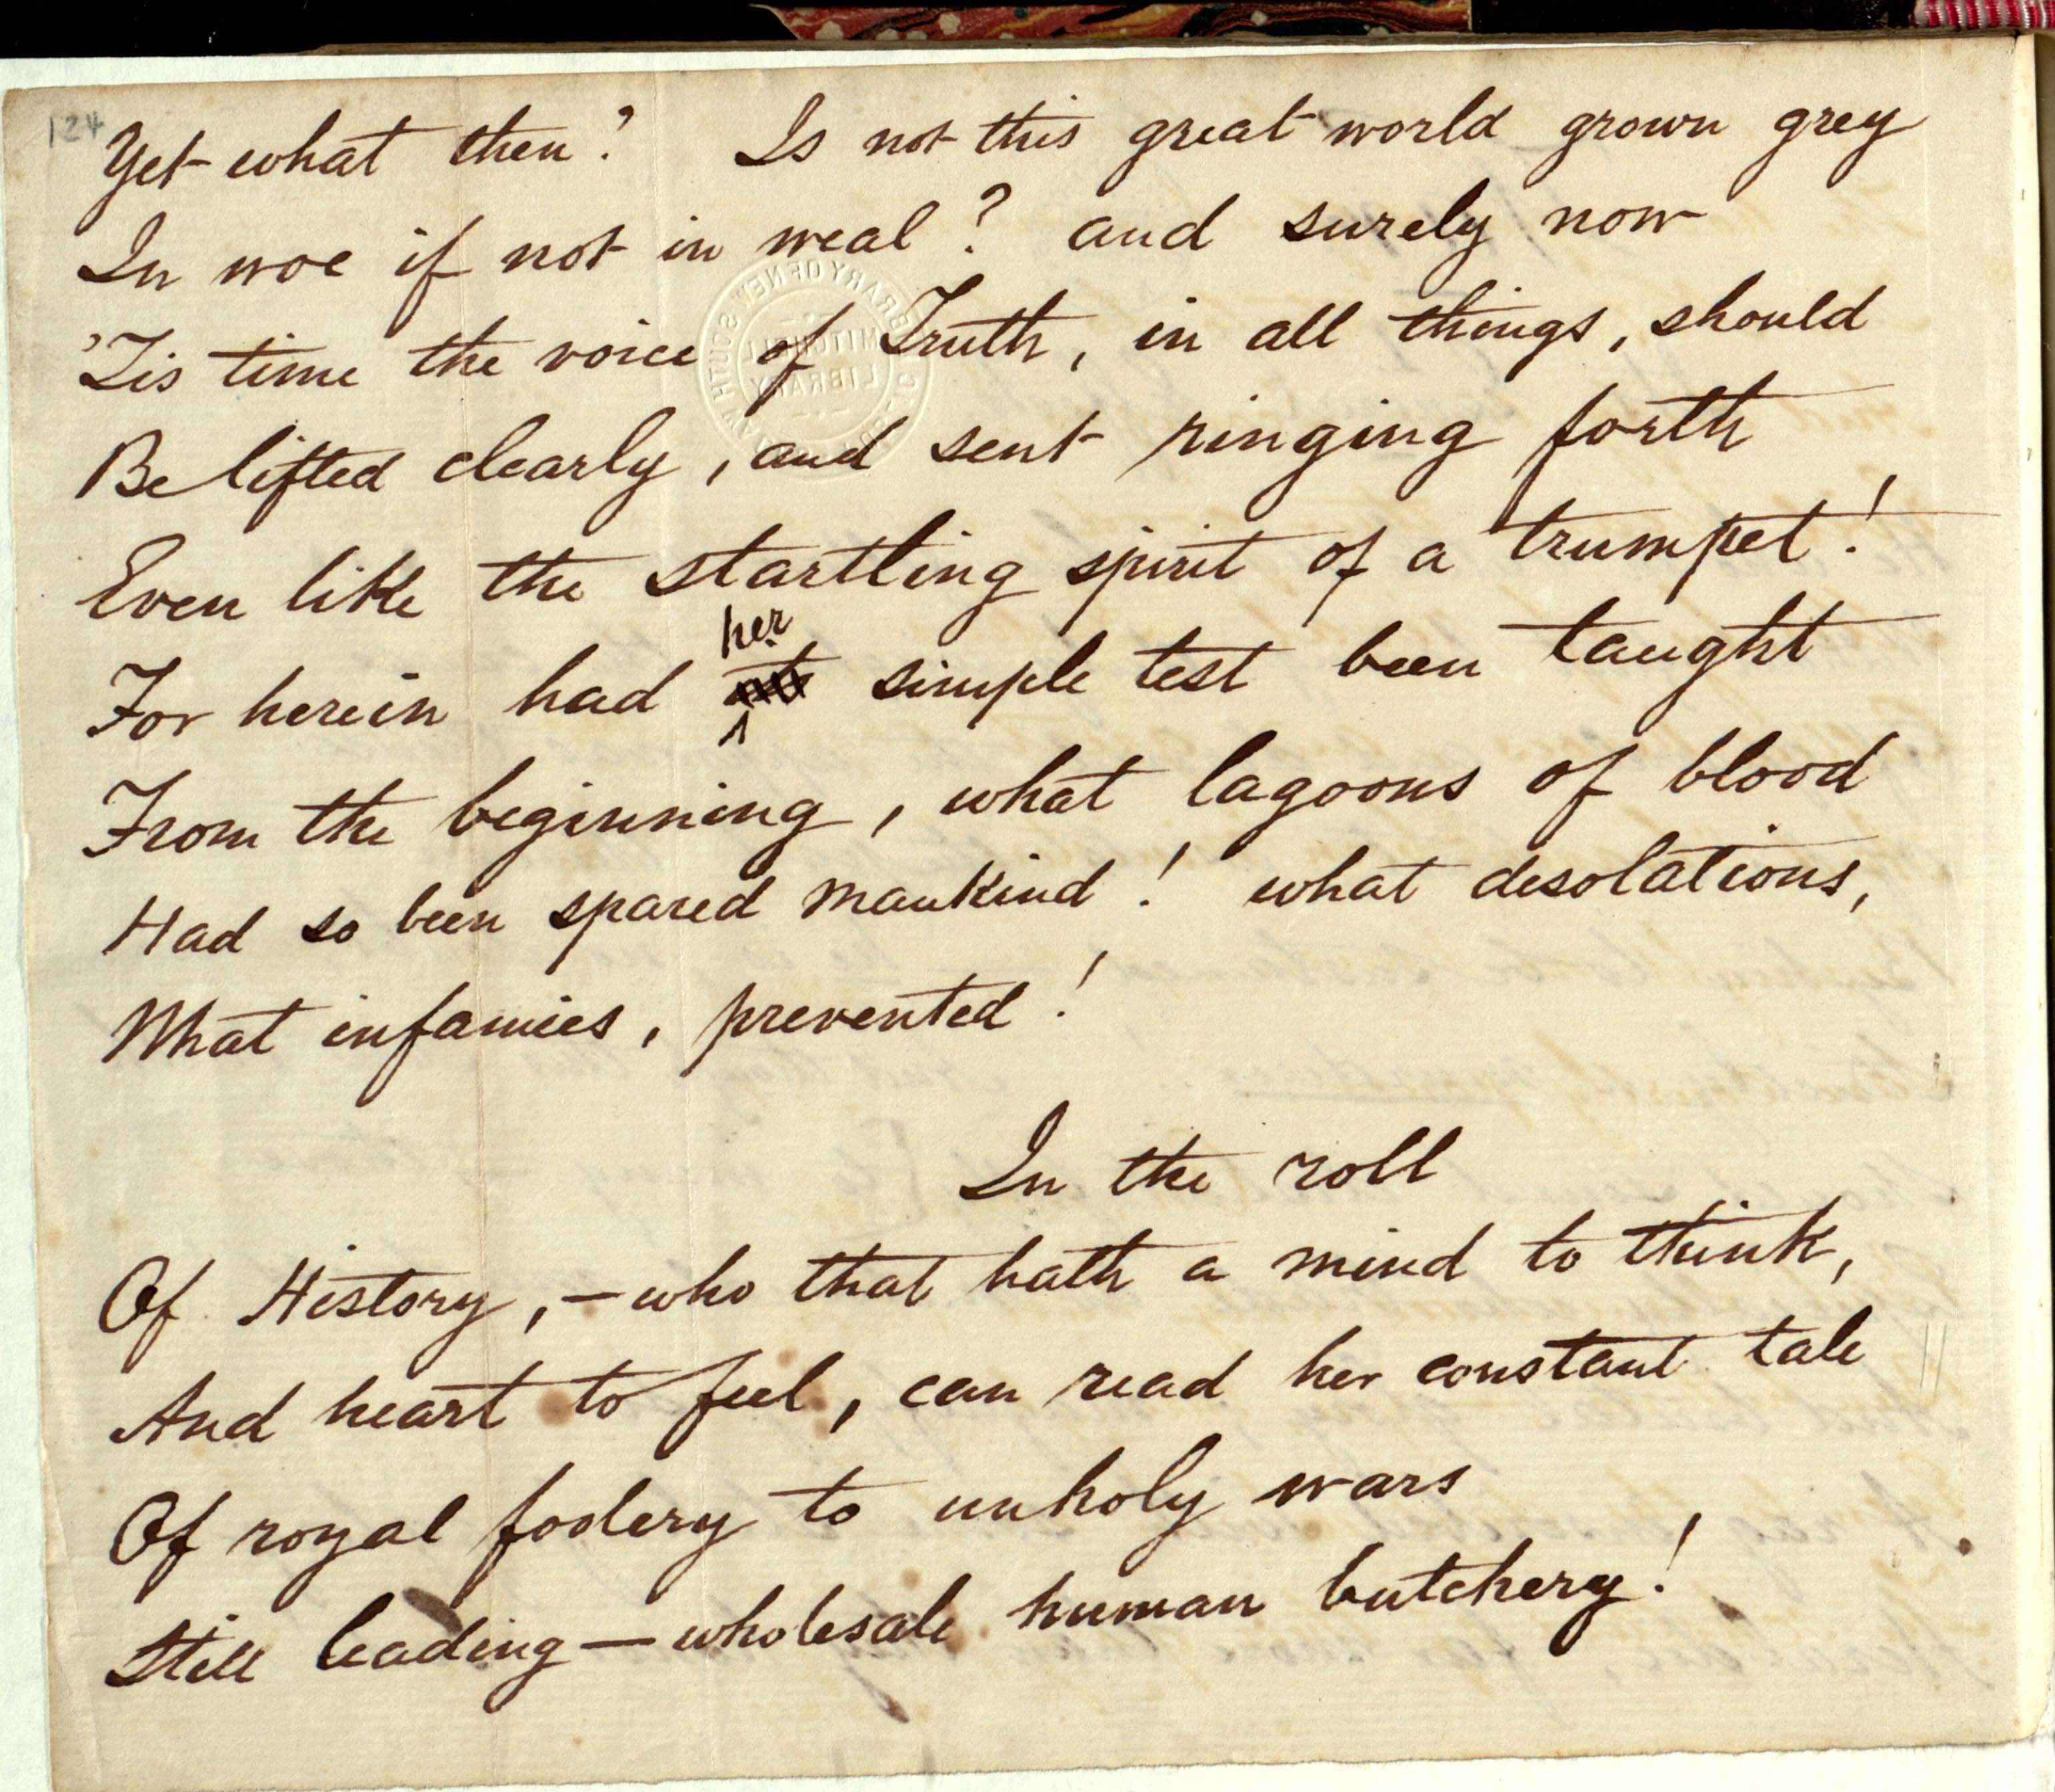 124
Yet what then? Is not this great world grown grey
In woe if not in weal? and surely now
'Tis time the voice of Truth, in all things, should
Be lifted clearly, and sent ringing forth
Even like the startling spirit of a trumpet!
her
For herein had simple test been taught
From the beginning, what lagoons of blood
Had so been spared mankind! what desolations,
What infamies, prevented!
In the roll
Of History, — who that hath a mind to think,
And heart to feel, can read her constant tale
Of royal foolery to unholy wars
Still leading — wholesale human butchery!